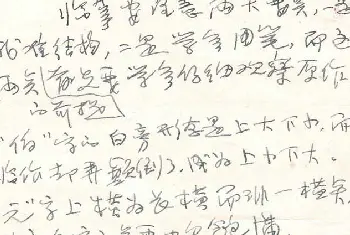 临摹要注意两大要点，一是
准结构，二是学会用笔，即这
两点都是要学会仔细观察原作
的前提
"伯"字的白旁形态是上大下小，而
临作却弄颠倒了，成为上小下大。
元字上横为长横而非一横点